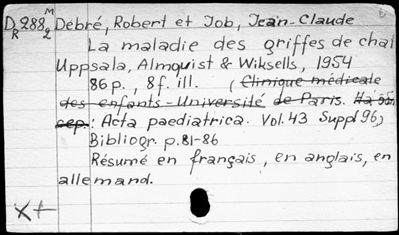 D 288 M Debré, Robert et Job, Jean-Claude
R 2
La maladie des griffes de chat
Uppsala, Almquist & Wiksells, 1954
86 p., 8 f. ill. (Clinique médicale
des enfants-Université de Paris.
: Acta paediatrica. Vol. 43 Suppl 96)
Bibliogr. p. 81-86
Résumé en français, en anglais, en
allemand.
X+